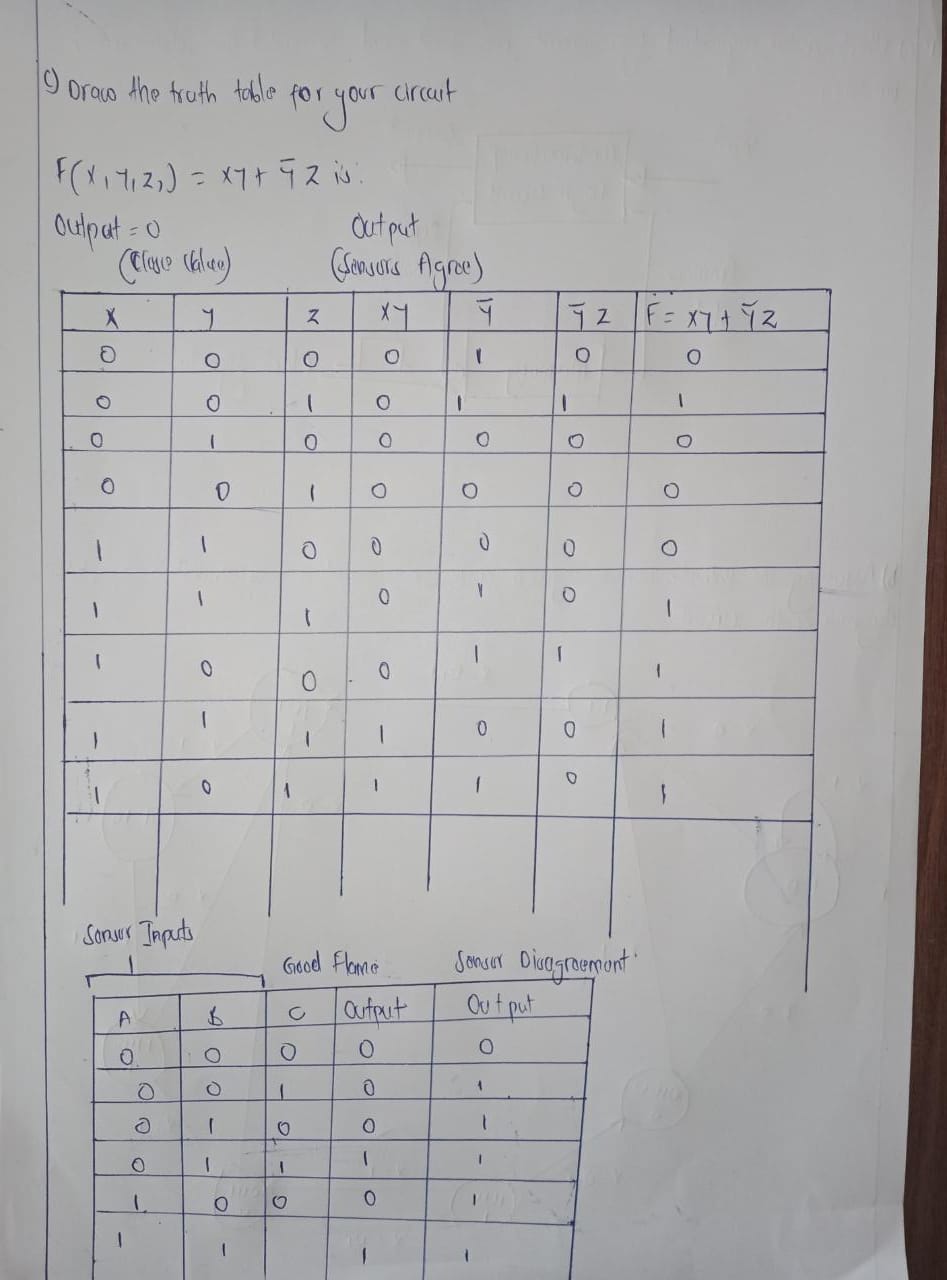 c) Draw the truth table for your circuit
F(x,y,z,) = xy + ȳ z is:
Output = 0 Output
(Close Valve) (Sensors Agree)
x y z xy ȳ ȳ z F = xy + ȳz
0 0 0 0 1 0 0
0 0 1 0 1 1 1
0 1 0 0 0 0 0
0 0 1 0 0 0 0
1 1 0 0 0 0 0
1 1 1 0 1 0 1
1 0 0 0 1 1 1
1 1 1 1 0 0 1
1 0 1 1 1 0 1
Sensor Inputs
Good Flame Sensor Disagreement
A B C Output Output
0 0 0 0 0
0 0 1 0 1
0 1 0 0 1
0 1 1 1 1
1 0 0 0 1
1 1 1 1